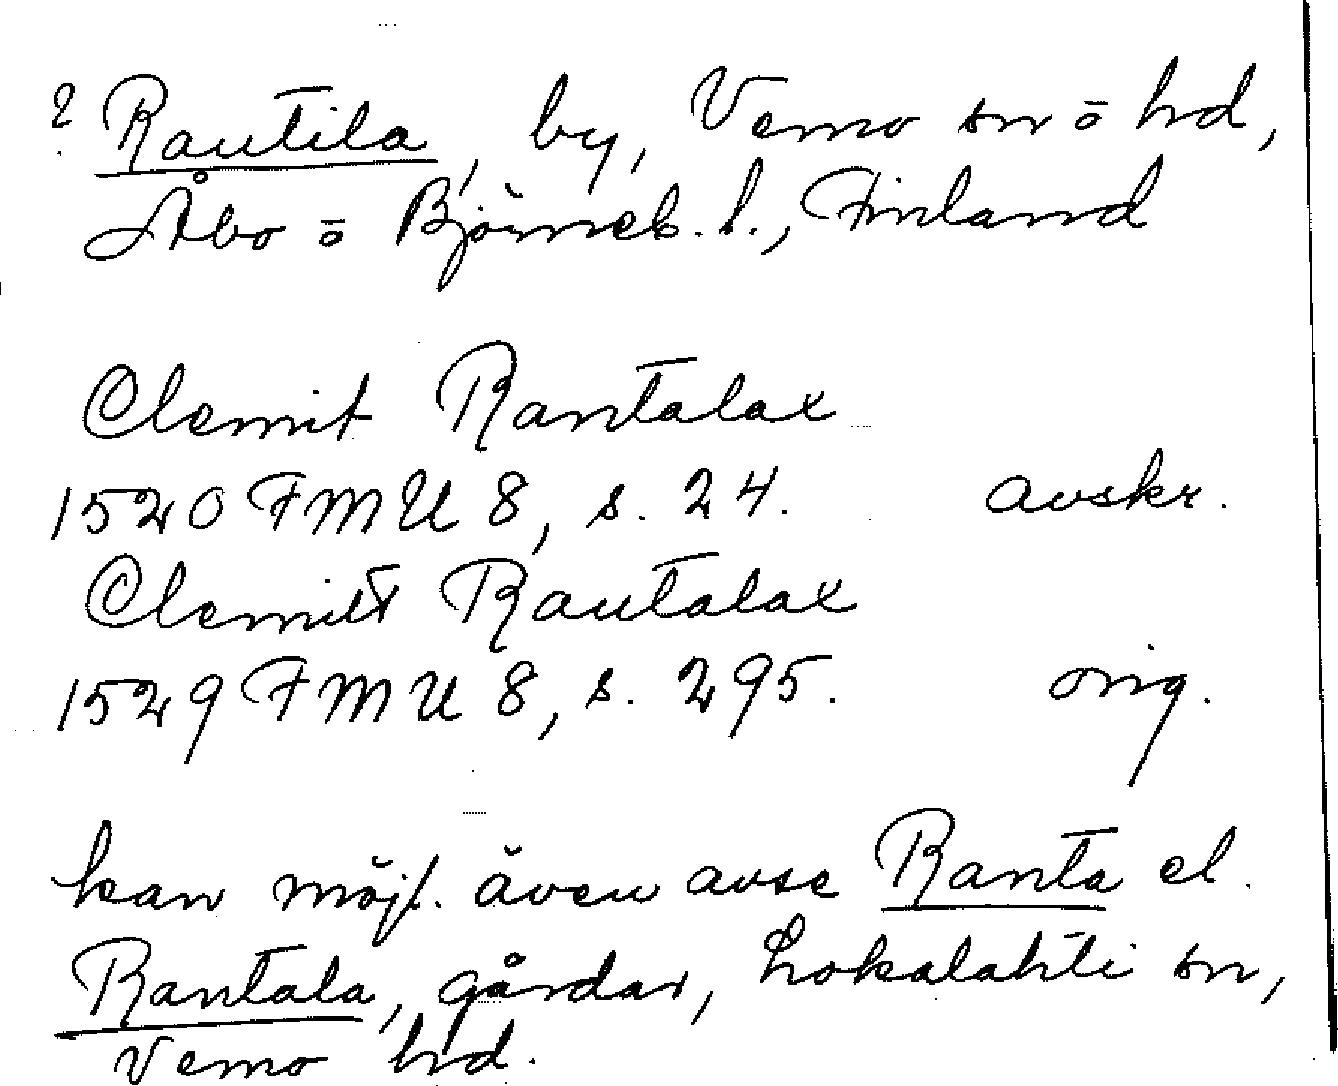 ? Rautila, by, Vemo sn ō hd,
Åbo ō Björneb. l., Finland
Clemit Rantalax
1520 FMU 8, s. 24. avskr.
Clemitt Rautalax
1529 FMU 8, s. 295. orig.
kan möjl. även avse Ranta el.
Rantala, gårdar, Lokalahti sn,
Vemo hd.